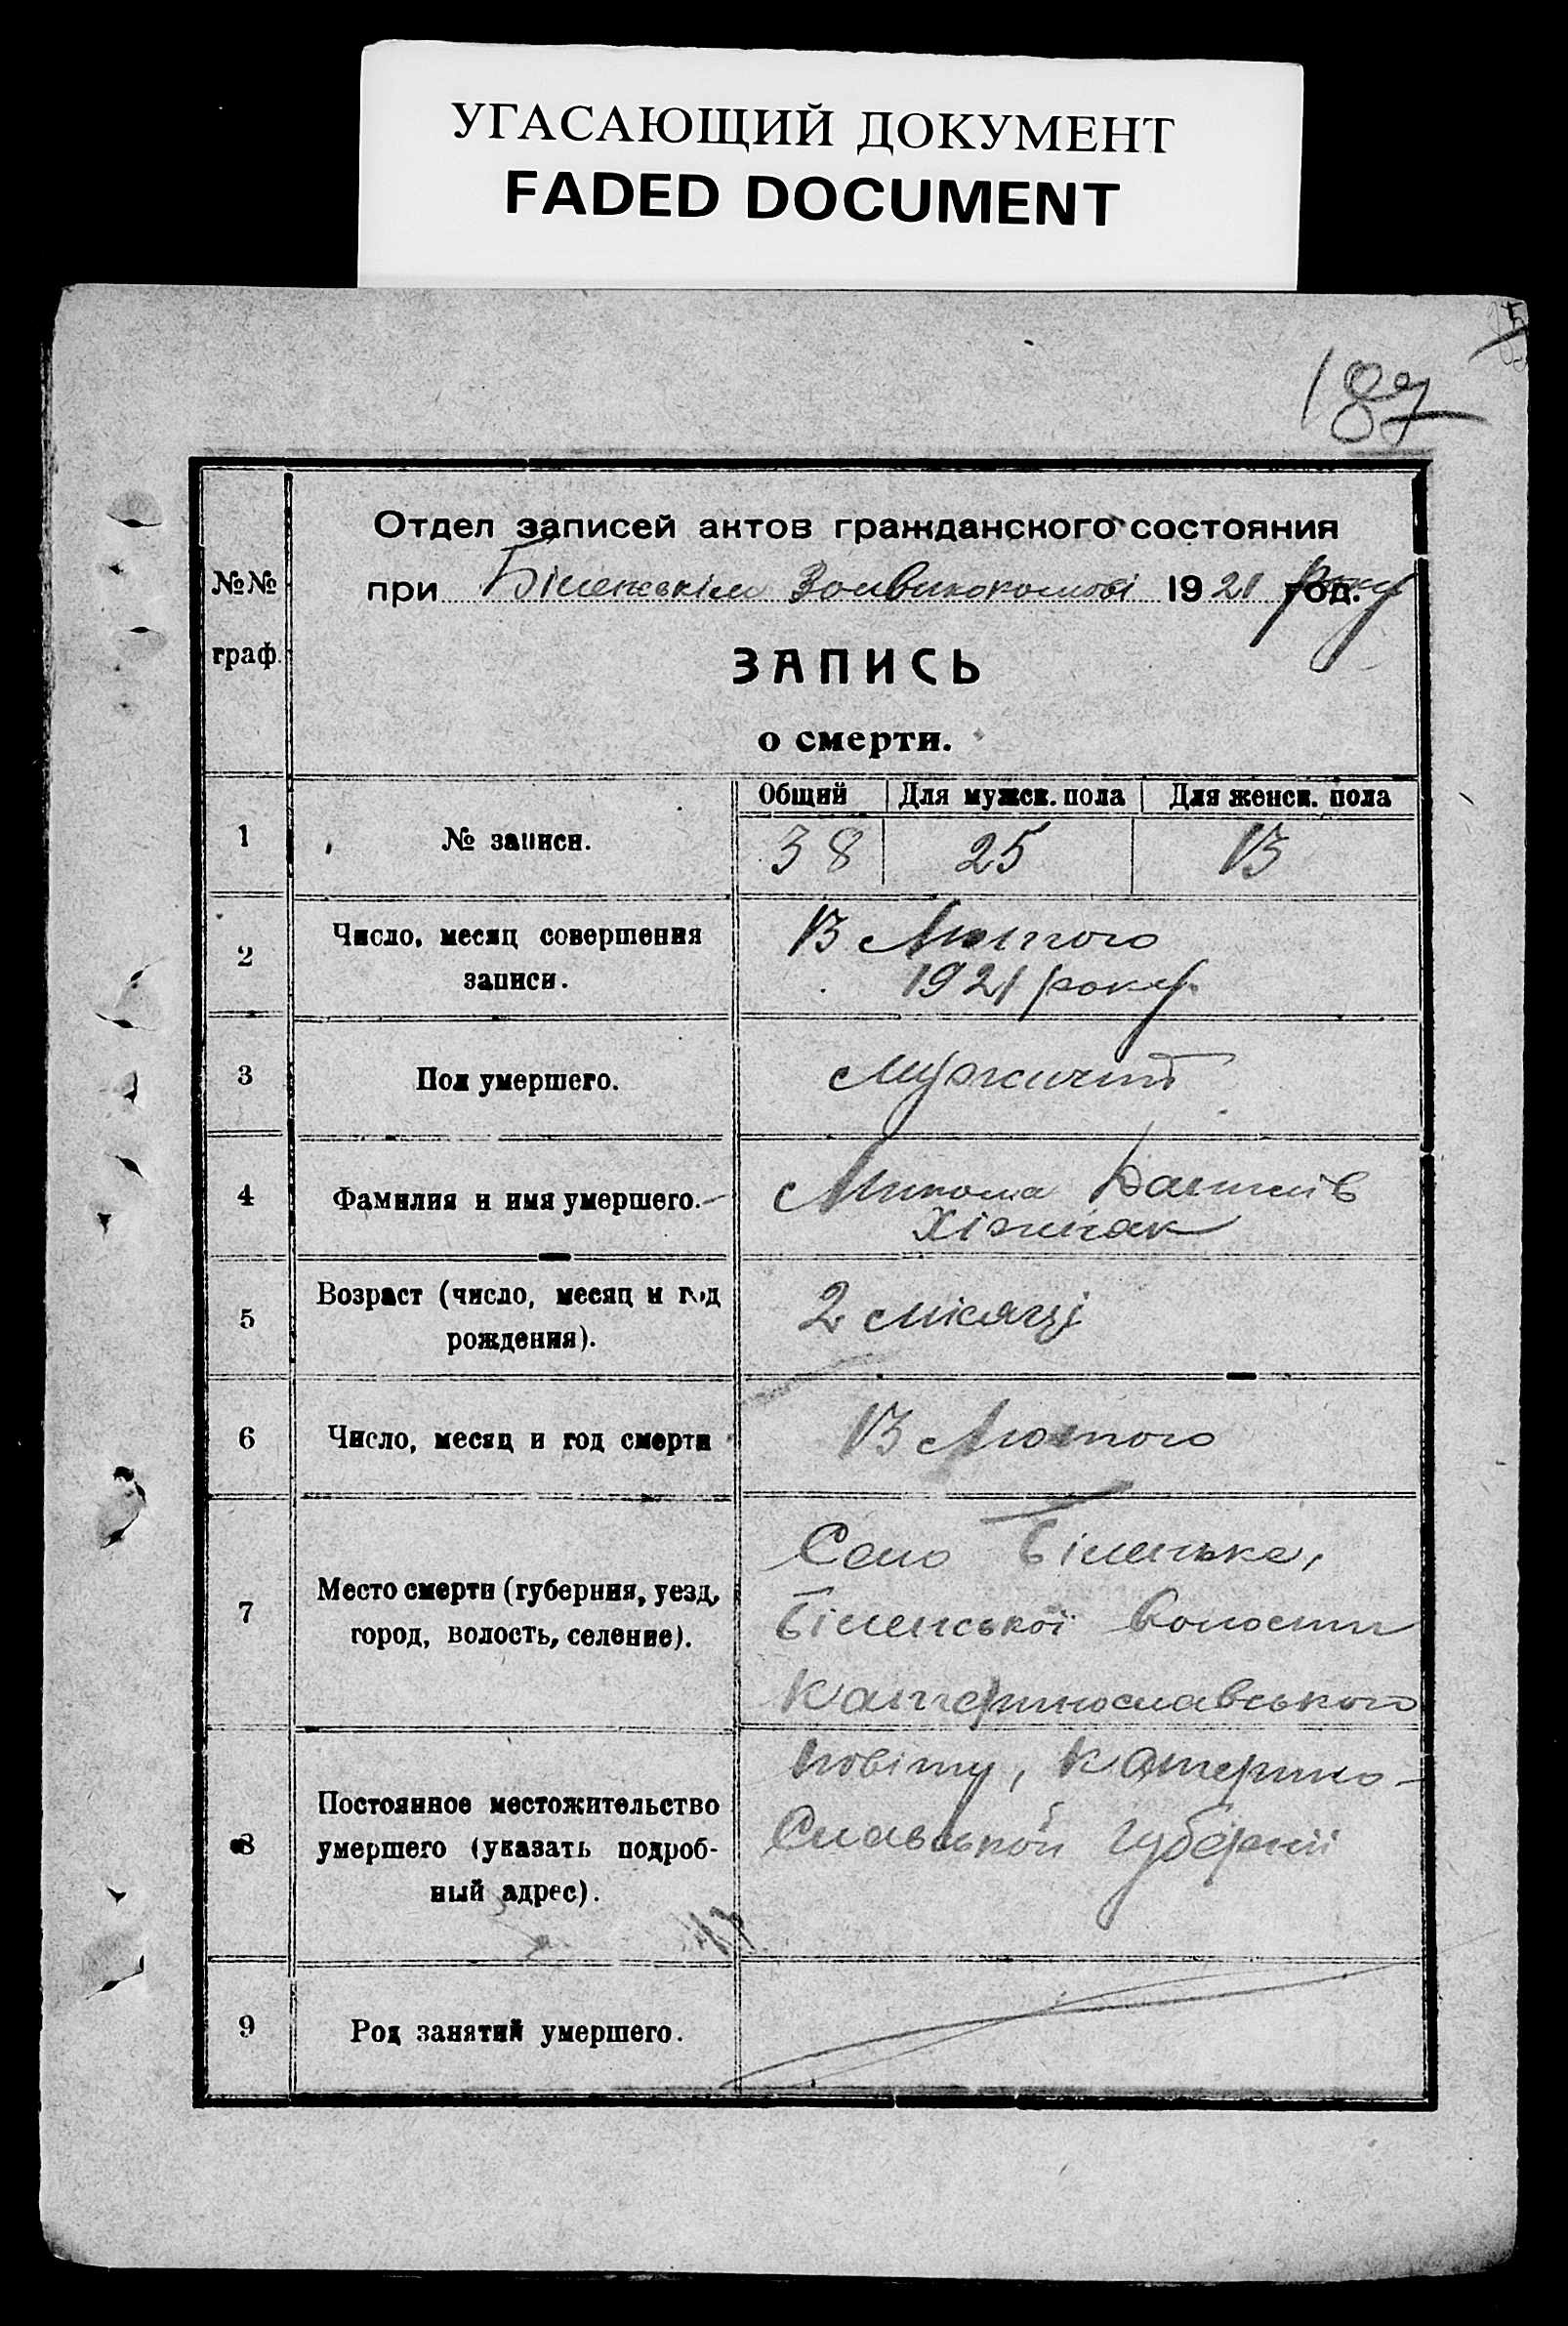 УГАСАЮЩИЙ ДОКУМЕНТ
FADED DOCUMENT
187
№№ граф.
Отдел записей актов гражданского состояния
при Біленськім Волвиконкомові 1921 год. року
ЗАПИСЬ
о смерти.
Общий Для мужск. пола Для женск. пола
1 № записи. 38 25 13
2 Число, месяц совершения записи. 13 Лютого
1921 року
3 Пол умершего. Мужичий
4 Фамилия и имя умершего. Микола
5 Возраст (число, месяц и год рождения). 2 місяці
6 Число, месяц и год смерти 13 Лютого
7 Место смерти (губерния, уезд, город, волость, селение). Село Біленьке,
Біленської волости
Катеринославського
8 Постоянное местожительство умершего (указать подроб-
ный адрес). повіту, Катерино-
Славської губернії
9 Род занятий умершего.